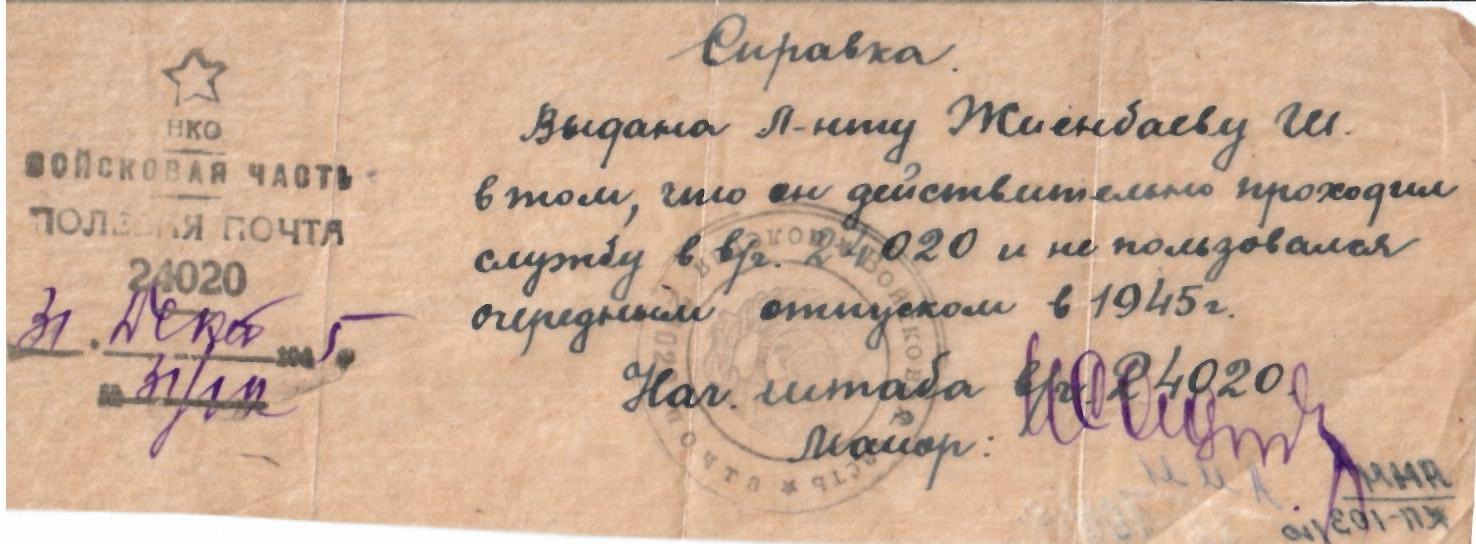 НКО
ВОЙСКОВАЯ ЧАСТЬ
ПОЛЕВАЯ ПОЧТА
24020
31. Декаб 1945
№
Справка.
Выдана Л-нту Жиенбаеву Ш.
в том, что он действительно проходил
службу в в/ч. 24020 и не пользовался
очередным отпуском в 1945г.
Нач. штаба в/ч. 24020.
Майор:
КП-103